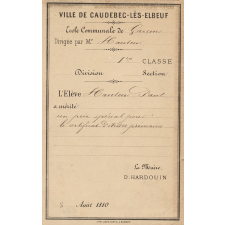 VILLE DE CAUDEBEC-LÈS-ELBEUF
Ecole Communale de Garçons
Dirigée par Mr
1ère CLASSE
Division Section
L'Elève Paul
a mérité
un prix spécial pour
le certificat d'études primaires
Le Maire,
D. HARDOUIN
Août 1880